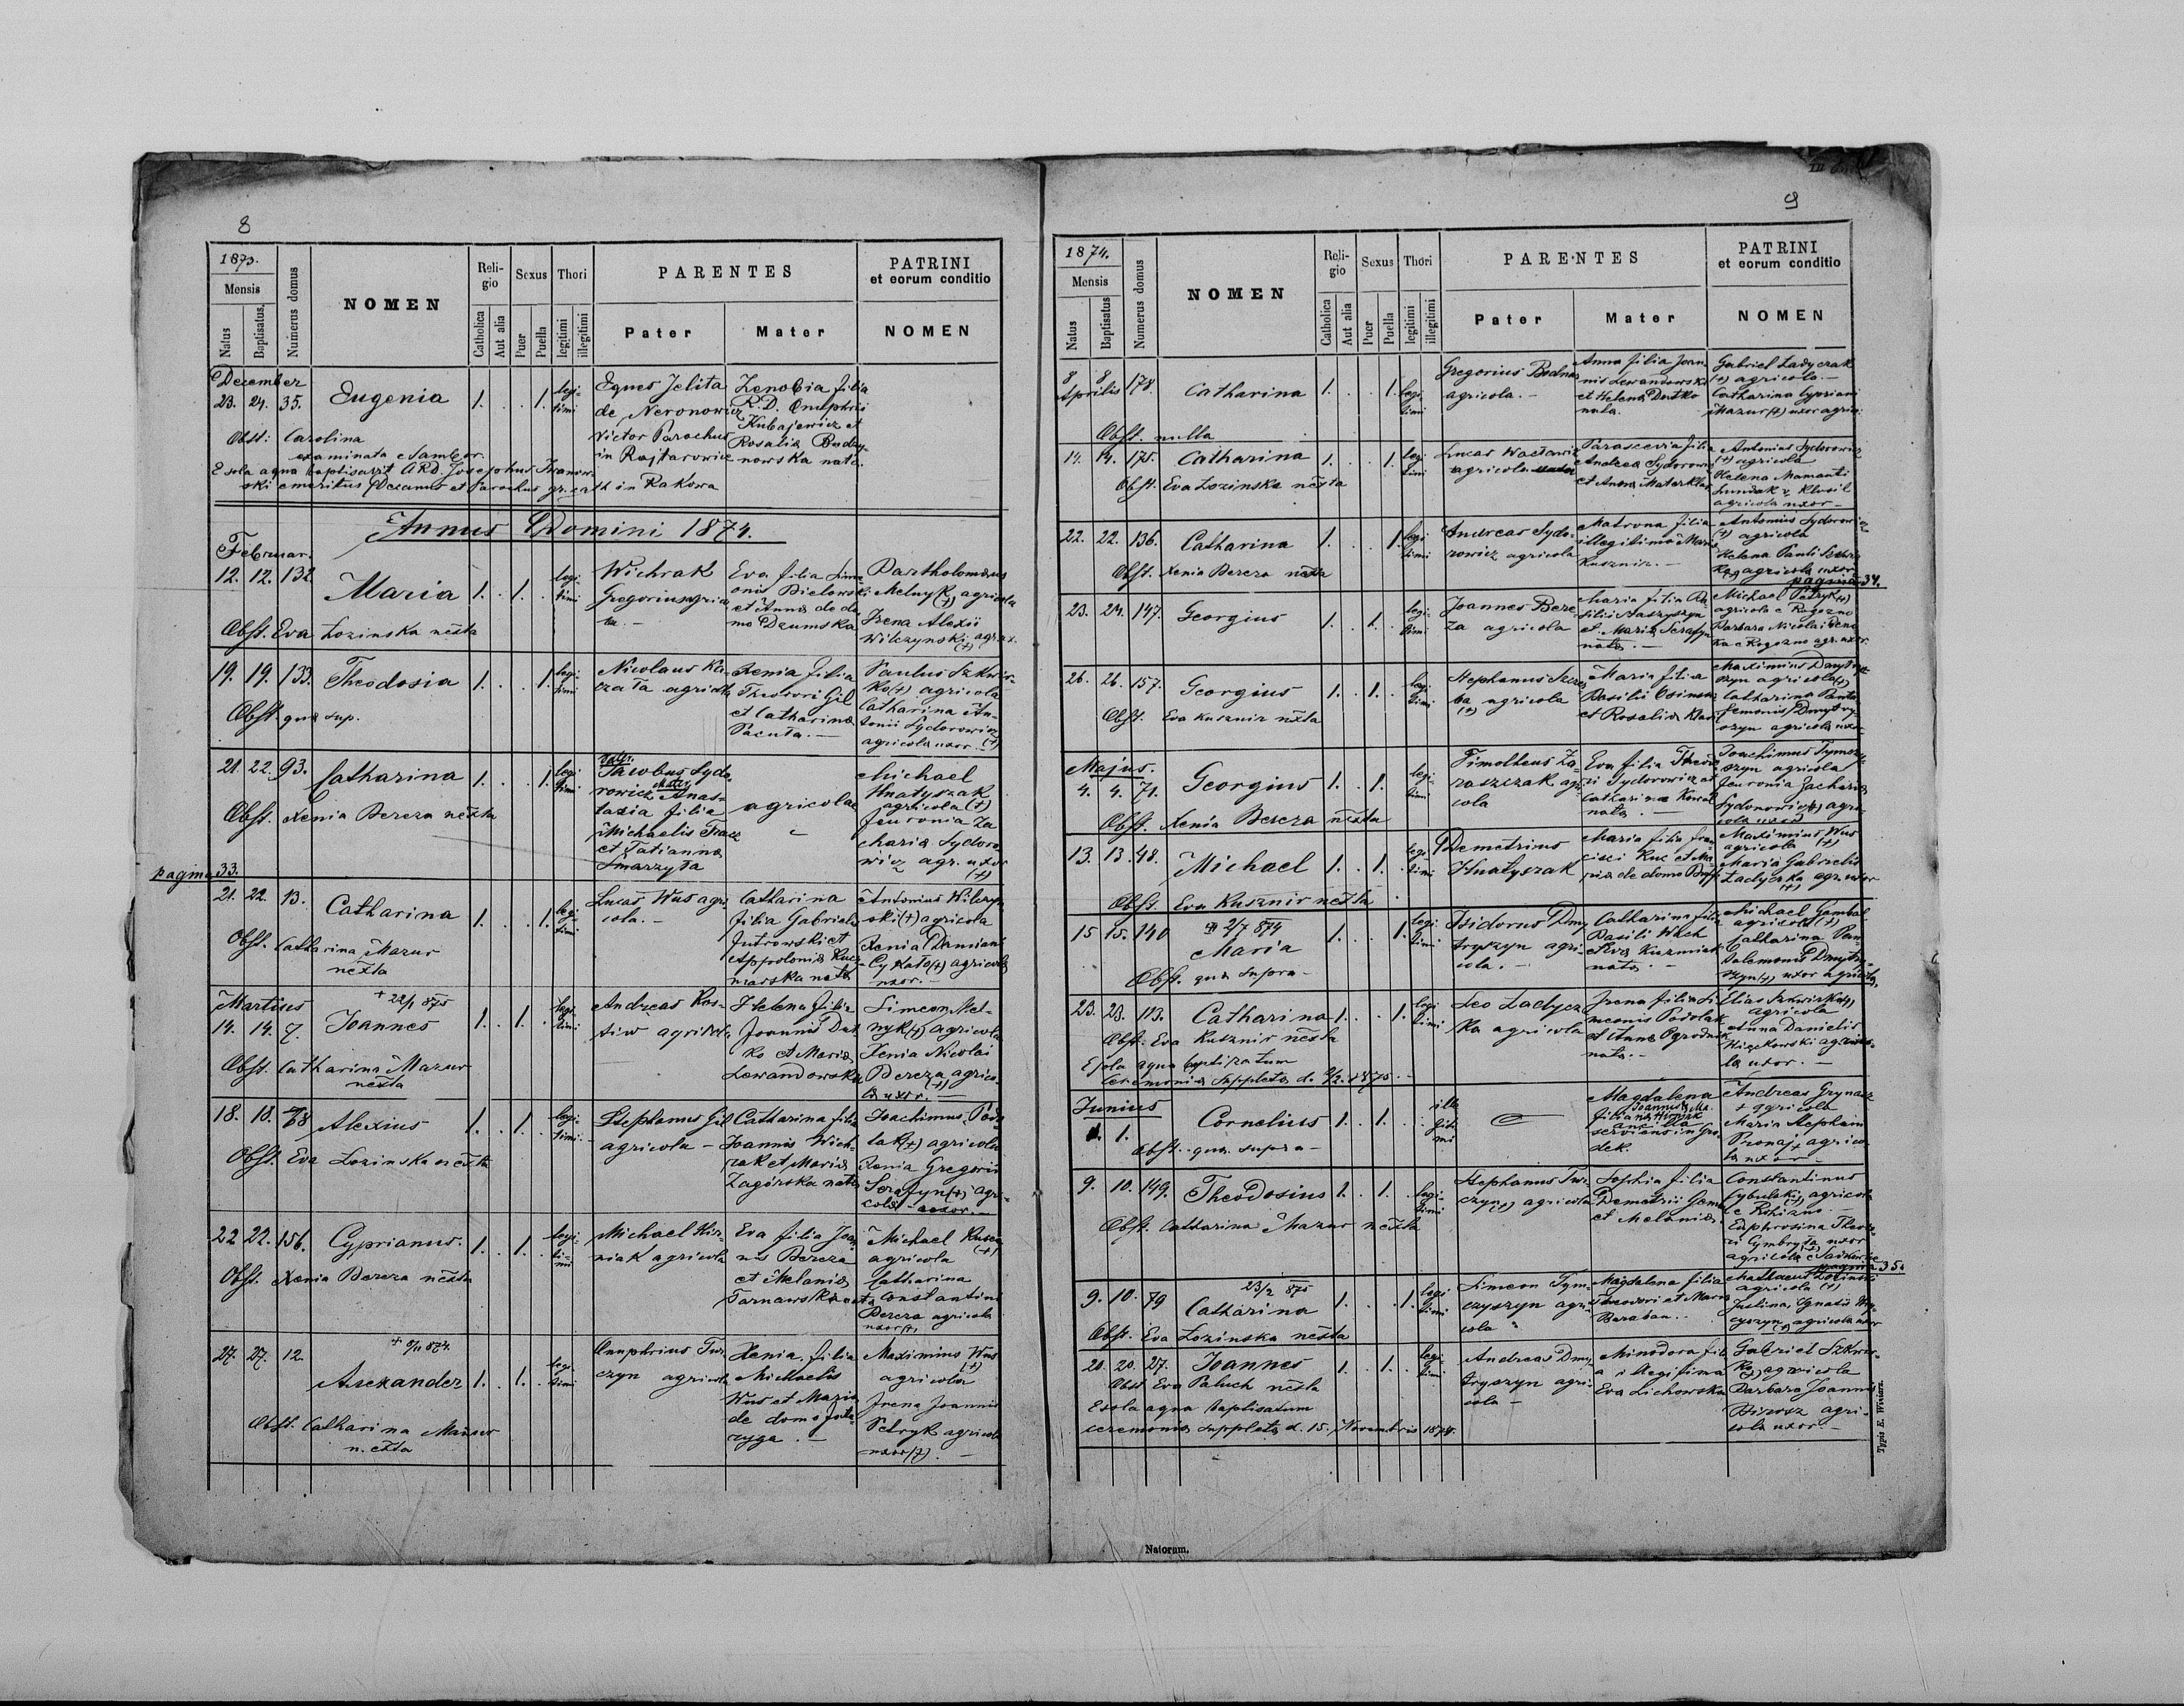 8
1873.
Mensis
Natus
Baptisatus.
Numerus domus
NOMEN
Religio
Catholica
Aut alia
Sexus
Puer
Puella
Thori
legitimi
illegitimi
PARENTES
Pater
Mater
PATRINI
et eorum conditio
NOMEN
December
23. 24. 35. Eugenia 1. . . 1. legi-
timi
Eques Jelita
de Neronowicz
Victor Parochus
in Rajtarowice
Zenobia filia
R.D. Onuphrii
Kubajewicz et
Rosalia
nowska nata.
Obst: Carolina
examinata Sambor.
E sola aqua baptisavit ARD. Josephus Iwanow-
ski emeritus Decanus et Parochus gr. cath in Rakowa
Annus Domini 1874.
Februar.
12. 12. 132 Maria 1. . 1. . legi-
timi
Wichrak
Gregorius agrico
la.-
Eva filia Sime
onis Bielowski
et Anna de do
mo Dzumska
Bartholomaeus
Melnyk (+) agricola
Irena Alexii
Wilczynski agr. ux.
(+)
Obst. Eva Lozinska nexta
19. 19. 133. Theodosia 1. . . 1. legi-
timi
Nicolaus Ka
czała agricola
Xenia filia
Theodori Gil
et Catharina
Pacuta. -
Paulus Szkwir-
ko (+) agricola
Catharina An-
tonii Sydorowicz
agricola uxor. (+)
Obst. qua sup.
21. 22. 93. Catharina 1. . . 1. legi
timi
pater
Jacobus Sydo-
rowicz mater Anas-
tasia filia
Michaelis
et Tatianna
Smarzyta
agricolae
Michael
Hnatyszak
agricola (+)
Feuronia Za
charia Sydoro-
wicz agr. uxor
(+)
Obst. Xenia Bereza nexta
pagina 33.
21. 22. 13. Catharina 1. . . 1. legi-
timi
Lucas Wus agri
cola. -
Catharina
filia Gabrielis
Jutrowski et
Appolonia Kucz-
marska nata
Antonius Wilczyn
ski (+) agricola
Xenia Damiani
Cykato (+) agricola
uxor. -
Obst. Catharina Mazur
nexta
Martius
14. 14. 7. + 22/1 875
Joannes 1. . 1. . legi-
timi
Andreas Kos-
tiw agricola
Helena filia
Joannis Dut
ko et Maria
Lewandowska
Simeon Mel-
nyk (+) agricola
Xenia Nicolai
Bereza agrico-
la uxor. - (+)
Obst. Catharina Mazur
nexta
18. 18. 78 Alexius 1. . 1. . legi-
timi.
Stephanus Gil
agricola -
Catharina filia
Joannis Wich
rak et Maria
Zagórska nata
Joachimus Pod
lak (+) agricola
Xenia Gregorii
Serafyn (+) agri-
cola uxor. -
Obst. Eva Lozinska nexta
22 22. 156. Cyprianus. 1. . 1. . legi-
ti-
mi
Michael Kir-
niak agricola
Eva filia Joan
nis Bereza
et Melania
Tarnawska nata
Michael
(+)
agricola
Catharina
Constantini
Bereza agricola
uxor (+)
Obst. Xenia Bereza nexta
27. 27. 12. + 874.
Alexander 1. . 1. . legi-
timi
Onuphrius Tur
czyn agricola
Xenia filia
Michaelis
Wus et Maria
de domo
ryga. -
Maximius Wus
(+)
agricola
Irena Joannis
Petryk agricola
uxor (+). -
Obst. Catharina Mazur
nexta
9
1874.
Mensis
Natus
Baptisatus
Numerus domus
NOMEN
Religio
Catholica
Aut alia
Sexus
Puer
Puella
Thori
legitimi
illegitimi
PARENTES
Pater
Mater
PATRINI
et eorum conditio
NOMEN
8 8
Aprilis 178. Catharina 1. . . 1. legi
timi
Gregorius Bodnar
agricola. -
Anna filia Joan
nis Lewandowski
et Helena Dutko
nata.
Gabriel Ladyczak
(+) agricola. -
Catharina Cypriani
Mazur (+) uxor agric.
Obst. nulla
14. 14. 175. Catharina 1. . . 1. legi
timi
Lucas Wacławicz
agricola
Parascevia filia
Andrea Sydorowicz
et Anna
Antonius Sydorowicz
(+) agricola
Helena
agricola uxor -
Obst. Eva Lozinska nexta
22. 22. 136. Catharina 1. . . 1. legi
timi
Andreas Sydo-
rowicz agricola
Matrona filia
illegitima Maria
Kusznir. -
Antonius Sydorowicz
(+) agricola
Helena Pauli
agricola uxor
Obst. Xenia Bereza nexta
pagina 34.
23. 24. 147. Georgius 1. . 1. . legi
timi
Joannes Bere
za agricola
Maria filia Ba
silii Staszyszyn
et Maria Serafyn
nata. -
Michael Petryk (+)
agricola e Rogozno
Barbara Nicolai
ka e Rogozno agr. uxor
26. 26. 157. Georgius 1. . 1. . legi
timi
Stephanus
ba agricola
(+)
Maria filia
Basilii
et Rosalia
Maximius Dmytry-
szyn agricola (+)
Catharina Panta
lemonis Dmytry-
szyn agricola uxor
Obst. Eva Kusznir nexta
Majus.
4. 4. 71. Georgius 1. . 1. . legi-
timi
Timotheus Za-
raszczak agri
cola
Eva filia Theodo
ri Sydorowicz et
Catharina Kowal
nata. -
Joachimus Tymczy-
szyn agricola
Feuronia Zacharia
Sydorowicz (+) agri-
cola uxor
Obst. Xenia Bereza nexta
13. 13. 48. Michael 1. . 1. . legi
timi
Demetrius
Hnatyszak
Maria filia Fran
cisci Kuc et Ma-
ria de domo
Maximius Wus
agricola (+)
Maria Gabrielis
Ladyczka agr. uxor
(+)
Obst. Eva Kusznir nexta
15 15. 140 2/7 874
Maria 1. . . 1. legi
timi
Isidorus Dmy
tryszyn agri-
cola. -
Catharina filia
Basili Wach
et Eva Kuzmiak
nata. -
Michael Gambal
agricola (+)
Catharina Pan-
talemonis Dmytry-
szyn (+) uxor agricola
Obst. qua supra -
23. 23. 113. Catharina 1. . . 1. legi
timi
Leo Ladycz
ka agricola
Irena filia Si
meonis Podolak
et Anna Ogrodnik
nata. -
Elias Szkwirko (+)
agricola
Anna Danielis
agrico-
la uxor. -
Obst. Eva Kusznir nexta
E sola aqua baptizatum
Ceremonia suppleta d. 2/2. 1875. -
Junius
1. 1. Cornelius 1. . 1. . ille
giti
mi
Magdalena
filia Joannis & Ma-
ria Hirniak
ancilla
serviens in Gro
dek.
Andreas Grynacz
+ agricola
Maria Stephani
Pronaj + agrico
la uxor -
Obst. qua supra -
9. 10. 149. Theodosius 1. . 1. . legi-
timi
Stephanus Tur-
czyn (+) agricola
Sophia filia
Demetrii
et Melania
Constantinus
Cybulski (+) agricola
e Rohizno -
Euphrosina Theodo
ri Cymbryła uxor
agricola e
Obst. Catharina Mazur nexta
pagina 35.
9. 10. 79 23/2 875
Catharina 1. . . 1. legi
timi
Simeon Tym-
czyszyn agri
cola
Magdalena filia
Theodori et Maria
Baraban. .
Mathaeus Lozinski
agricola (+)
Justina Ignatii Tym-
czyszyn (+) agricola uxor
Obst. Eva Lozinska nexta
20. 20. 27. Joannes 1. . 1. . legi-
timi
Andreas Dmy
tryszyn agri-
cola -
Minodora fili
a illegitima
Eva Lichowska
Gabriel Szkwir-
ko (+) agricola
Barbara Joannis
agri-
cola uxor. -
Obst. Eva Paluch nexta
E sola aqua baptisatum
ceremonia suppleta d. 15. Novembris 1874.
Typis E. Winiarz.
Natorum.